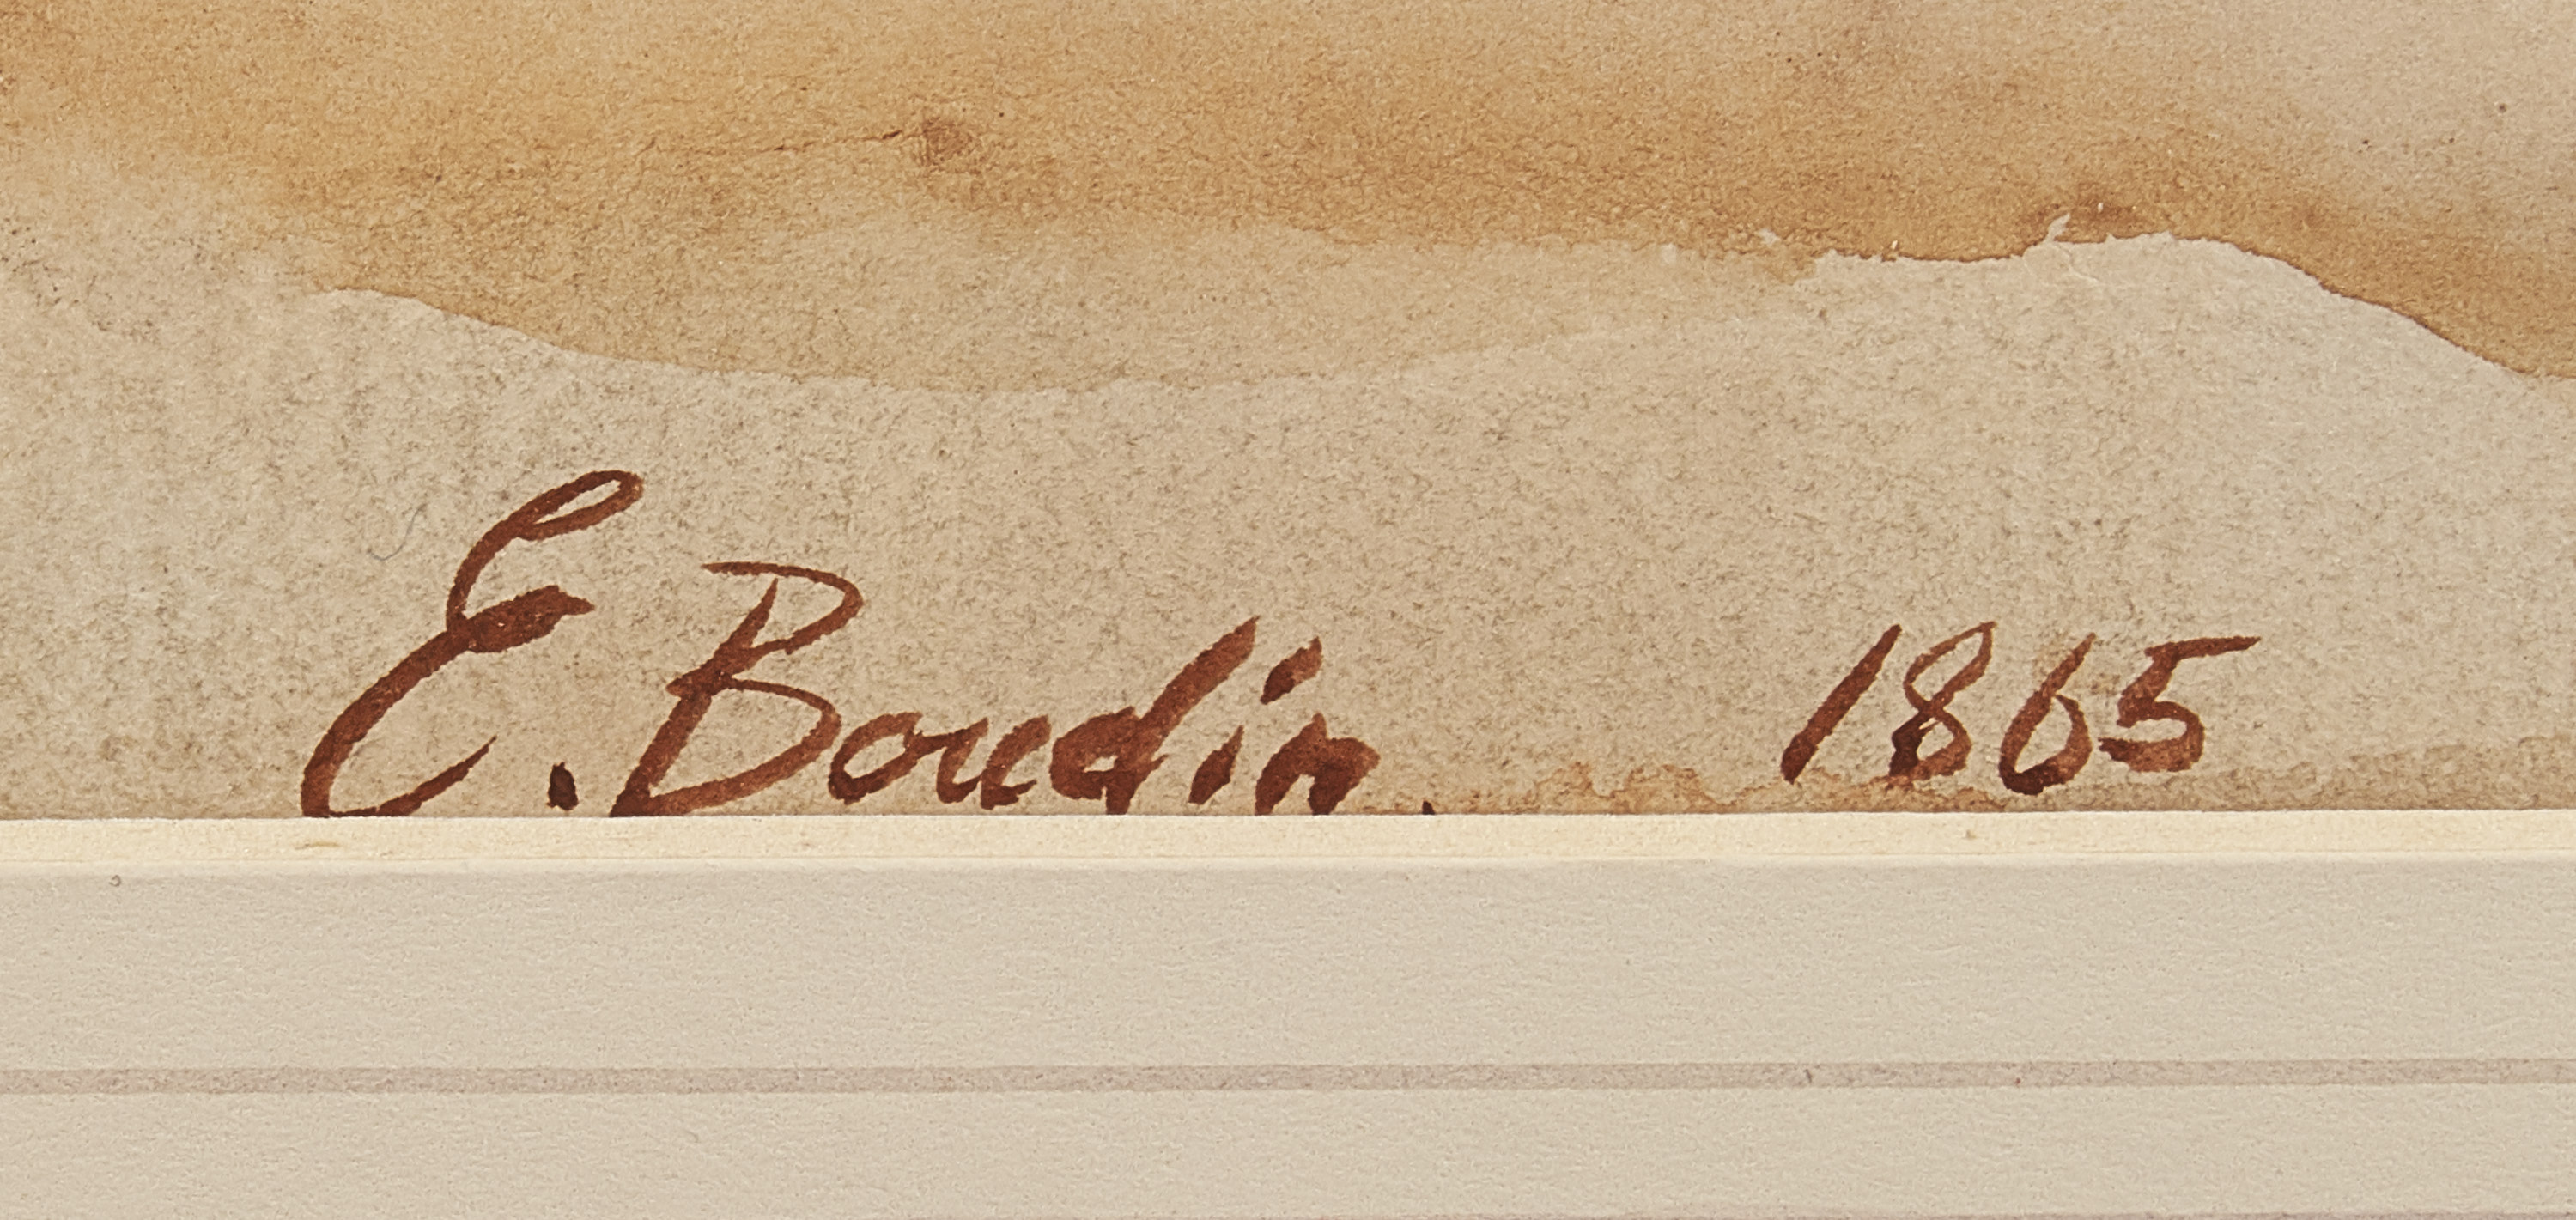 E. Boudin. 1865